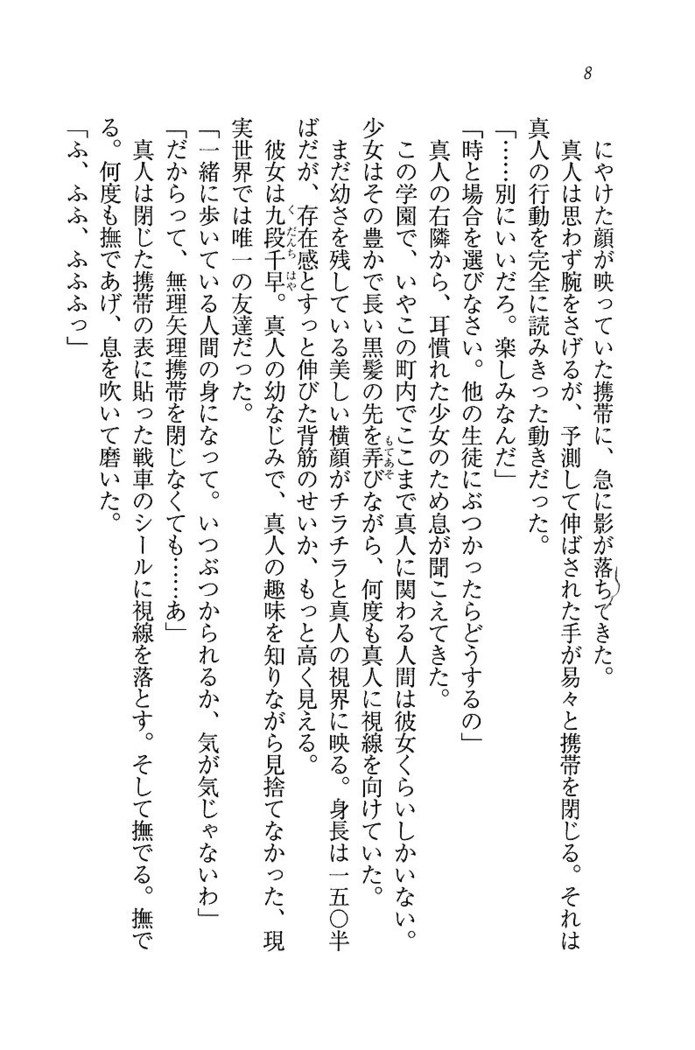 8
にやけた顔が映っていた携帯に、急に影が落ちてきた。
真人は思わず腕をさげるが、予測して伸ばされた手が易々と携帯を閉じる。それは
真人の行動を完全に読みきった動きだった。
「……別にいいだろ。楽しみなんだ」
「時と場合を選びなさい。他の生徒にぶつかったらどうするの」
真人の右隣から、耳慣れた少女のため息が聞こえてきた。
この学園で、いやこの町内でここまで真人に関わる人間は彼女くらいしかいない。
少女はその豊かで長い黒髪の先を弄びながら、何度も真人に視線を向けていた。
まだ幼さを残している美しい横顔がチラチラと真人の視界に映る。身長は一五〇半
ばだが、存在感とすっと伸びた背筋のせいか、もっと高く見える。
彼女は九段千早。真人の幼なじみで、真人の趣味を知りながら見捨てなかった、現
実世界では唯一の友達だった。
「一緒に歩いている人間の身になって。いつぶつかられるか、気が気じゃないわ」
「だからって、無理矢理携帯を閉じなくても……あ」
真人は閉じた携帯の表に貼った戦車のシールに視線を落とす。そして撫でる。撫で
る。何度も撫であげ、息を吹いて磨いた。
「ふ、ふふ、ふふふっ」